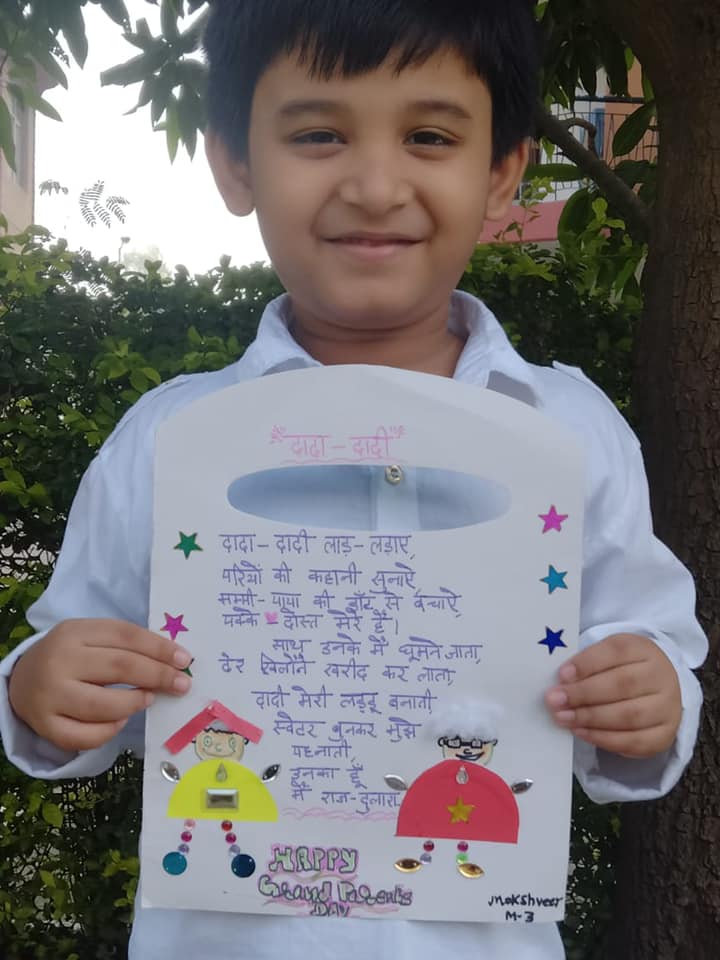 "दादा - दादी"
दादा - दादी लाड़ - लड़ाए,
परियों की कहानी सुनाऐ,
मम्मी - पापा की डाँट से बचाऐ,
पक्के - दोस्त मेरे हैं।
साथ उनके मैं घूमने जाता,
ढेर खिलौने खरीद कर लाता,
दादी मेरी लड्डू बनाती,
स्वेटर बुनकर मुझे
पहनाती,
इनका हूँ
मैं राज - दुलारा
HAPPY
Grand Parents
DAY
Mokshveer
M-3